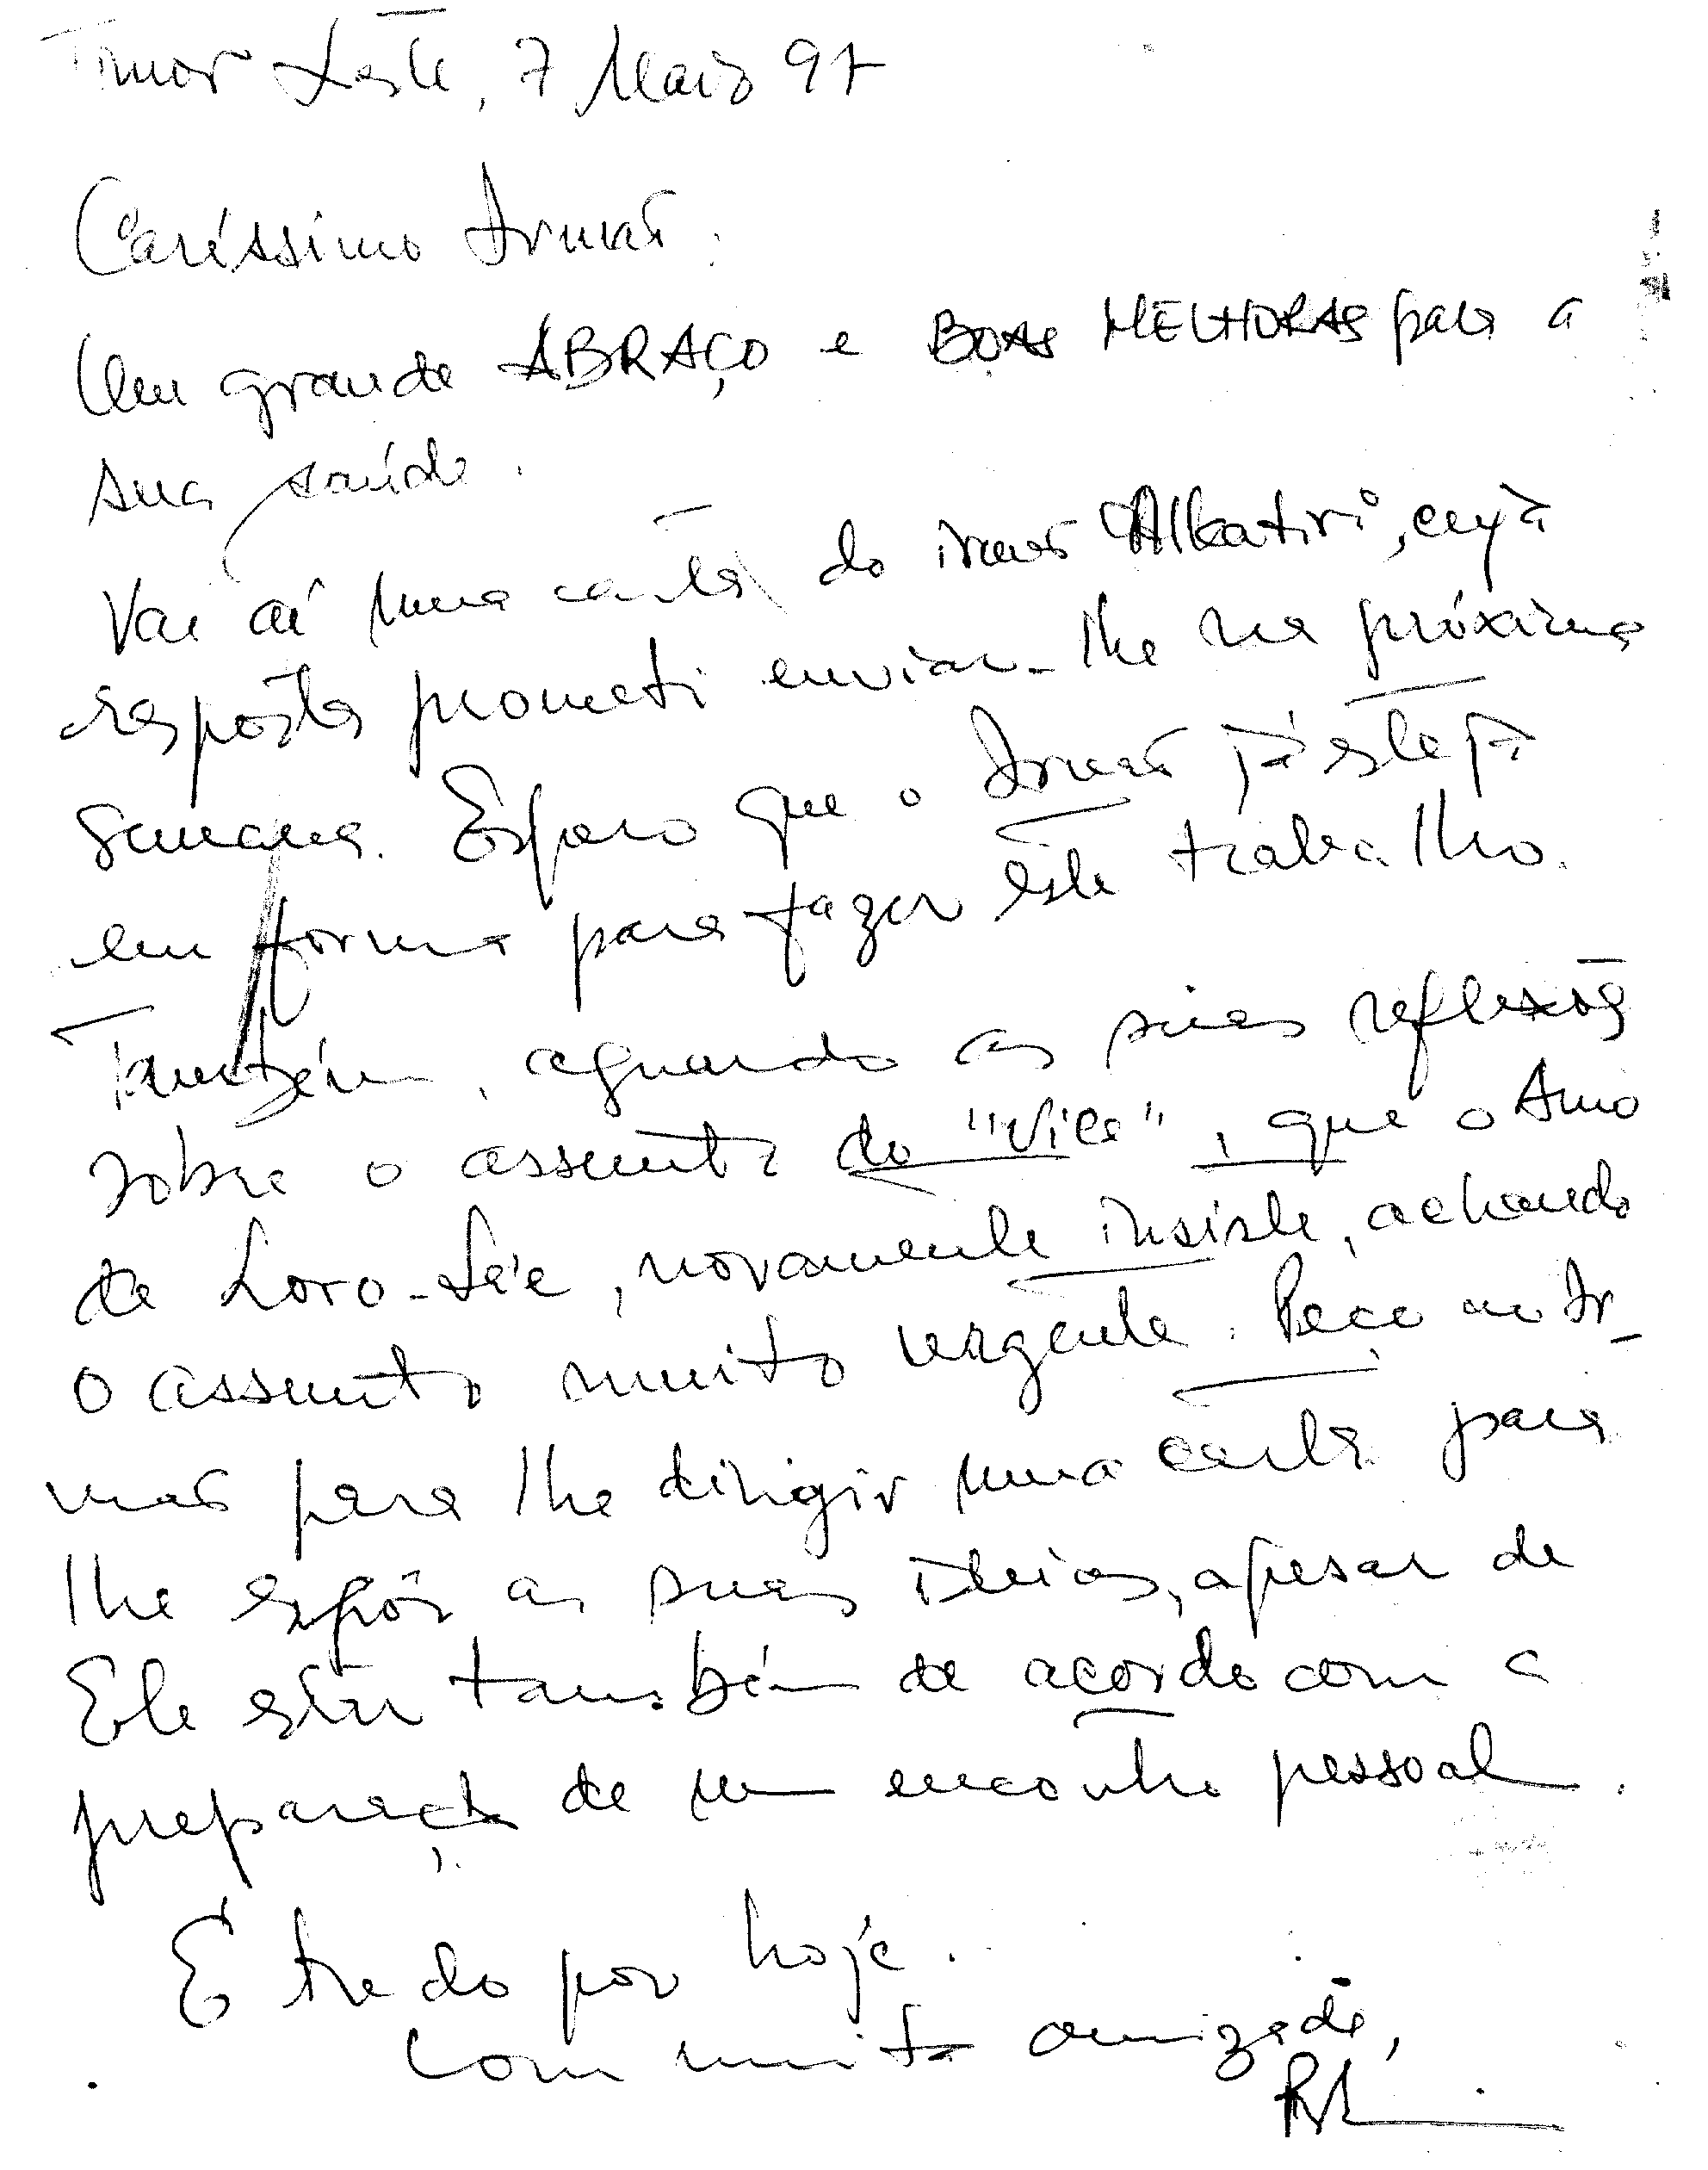 Timor Leste, 7 Maio 97
Caríssimo Irmão.
Um grande ABRAÇO e BOAS MELHORAS para a
sua saúde.
Vai aí uma carta do irmão Alkatiri, cuja
resposta prometi enviar-lhe na próxima
semana. Espero que o Irmão já esteja
em forma para fazer este trabalho.
Também, aguardo as suas reflexões
sobre o assunto do "Vice", que o Amo
de Loro-Sa'e, novamente insiste, achando
o assunto muito urgente. Peço ao Ir-
mão para lhe dirigir uma carta para
lhe expôr as suas ideias, apesar de
Ele estar também de acordo com a
preparação de um encontro pessoal.
É tudo por hoje.
Com muita amizade,